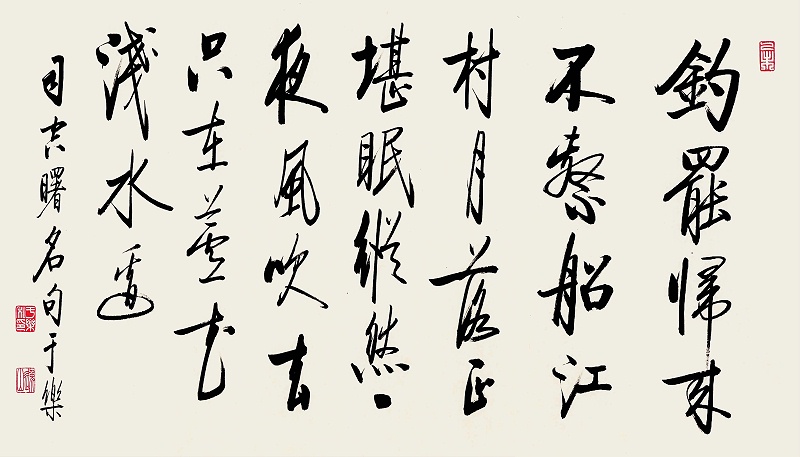 釣罷歸來
不繫船江
村月落正
堪眠縱然一
夜風吹去
只在蘆花
淺水邊
司空曙名句于樂